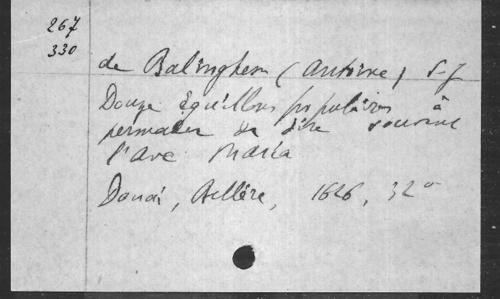 267
330
de Balinghem (Antoine) S.J
Douze éguillons populaires à
permader de dire souvent
l'ave Maria
Douai, Bellère, 1626, 32°